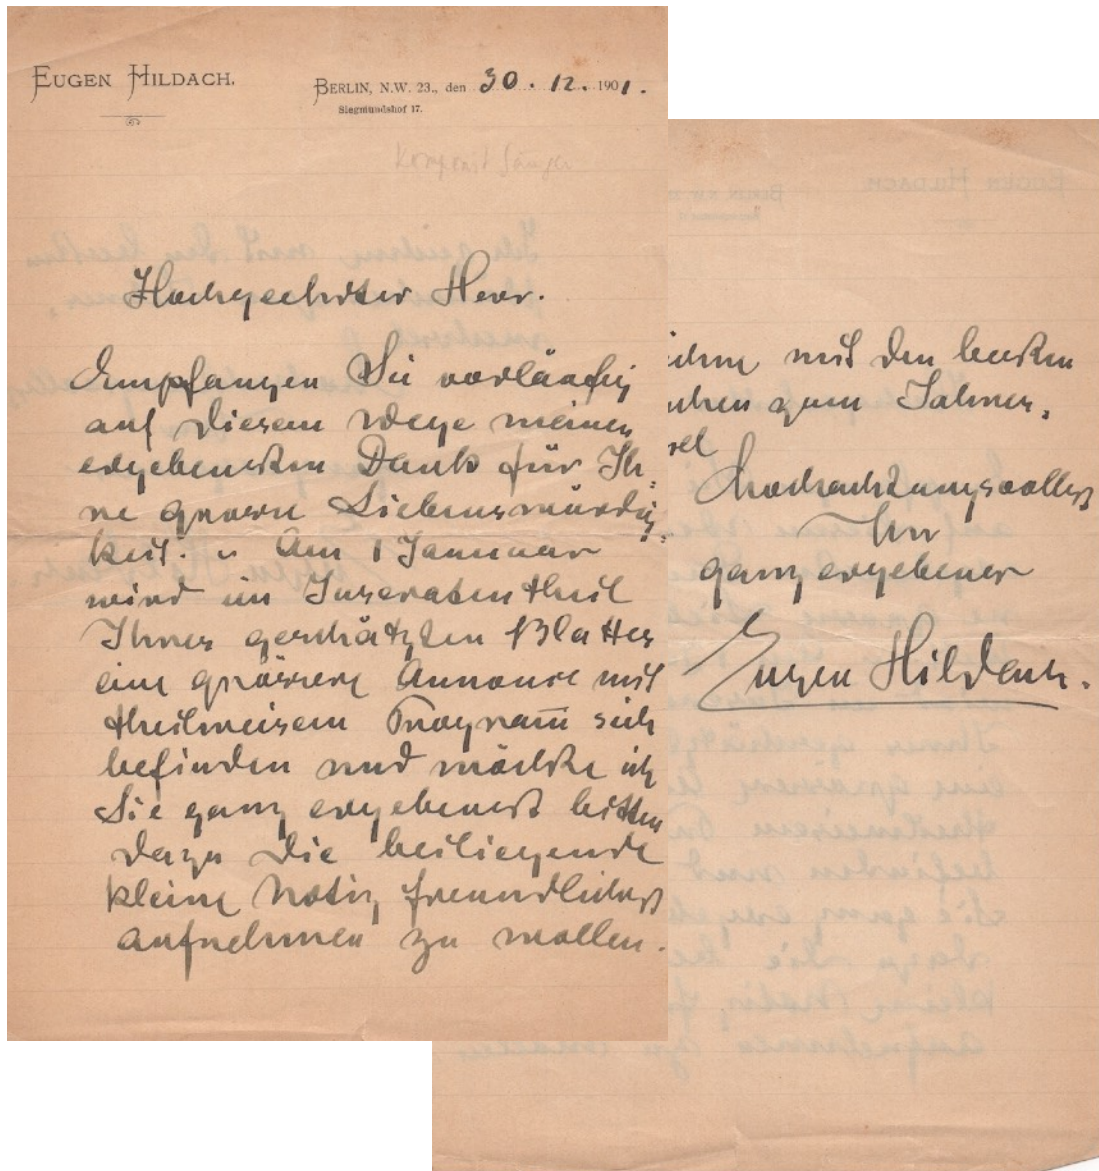 EUGEN HILDACH.
BERLIN, N.W. 23., den 30. 12. 1901.
Siegmundshof 17.
Komponist Sänger
Hochgeehrter Herr.
Empfangen Sie vorläufig
auf diesem Wege meinen
ergebensten Dank für Ih-
re grosse Liebenswürdig-
keit. Am 1 Januar
wird im Inseratentheil
Ihres geschätzten Blattes
eine grössere Annonce mit
theilweisem Program̅ sich
befinden und möchte ich
Sie ganz ergebenst bitten
dazu die beiliegende
kleine Notiz freundlichst
aufnehmen zu wollen.
mit den besten
zum Jahres-
sel
Hochachtungsvollst
Ihr
ganz ergebener
Eugen Hildach.